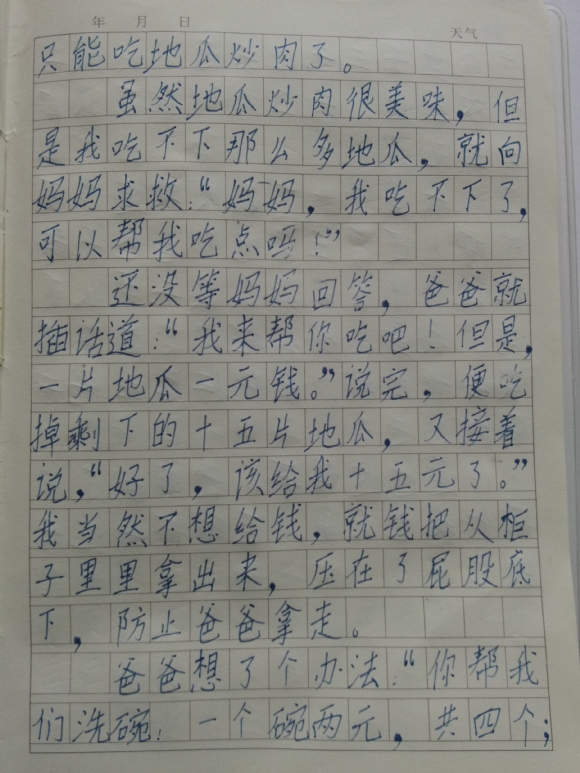 年 月 日 天气
只能吃地瓜炒肉了。
虽然地瓜炒肉很美味，但
是我吃不下那么多地瓜，就向
妈妈求救：“妈妈，我吃不下了，
可以帮我吃点吗！”
还没等妈妈回答，爸爸就
插话道：“我来帮你吃吧！但是，
一片地瓜一元钱。”说完，便吃
掉剩下的十五片地瓜，又接着
说，“好了，该给我十五元了。”
我当然不想给钱，就钱把从柜
子里里拿出来，压在了屁股底
下，防止爸爸拿走。
爸爸想了个办法：“你帮我
们洗碗：一个碗两元，共四个；